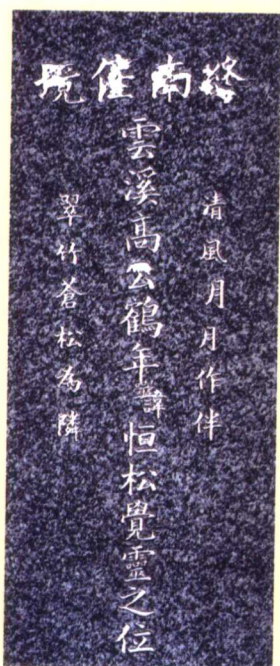 終南僊境
清風月月作伴
雲溪高公鶴年諱恒松覺靈之位
翠竹蒼松為隣